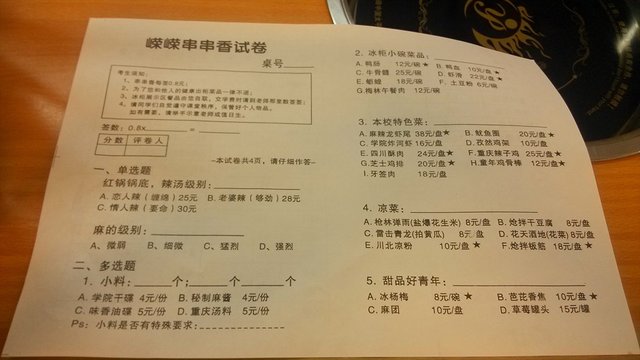 嵘嵘串串香试卷
桌号
考生须知：
1、串串香每签0.8元；
2、为了您和他人的健康出柜菜品一律不退；
3、冰柜展示区餐品自选自取，文字类付请到老师那里数签签；
4、请同学们自觉遵守课堂秩序，保管好个人物品。
如有需要，请举手示意老师或值日生。
签数：0.8x =
分数 评卷人
-本试卷共4页，请仔细作答-
一、单选题
红锅锅底，辣汤级别：
A. 恋人辣（缠绵）25元 B. 老婆辣（够劲）28元
C. 情人辣（要命）30元
麻的级别：
A、微弱 B、细微 C、猛烈 D、强烈
二、多选题
1. 小料： 个； 个 个
A. 学院干碟 4元/份 B. 秘制麻酱 4元/份
C. 味香油碟 5元/份 D. 重庆汤料 5元/份
Ps：小料是否有特殊要求：
2. 冰柜小碗菜品：
A. 鸭肠 12元/碗★ B. 鸭血 10元/盘★
C. 牛骨髓 25元/碗 D. 虾滑 22元/盘★
E. 螃蟹 18元/碗 F. 土豆粉 6元/碗
G. 梅林午餐肉 12元/碗
3. 本校特色菜：
A. 麻辣龙虾尾 38元/盘★ B. 鱿鱼圈 20元/盘★
C. 学院炸河虾 16元/盘 D. 孜然鸡架 10元/盘
E. 四川酥肉 24元/盘★ F. 重庆辣子鸡 25元/盘★
G. 芝士鸡排 20元/盘★ H. 童年鸡骨棒 12元/盘★
I. 牙签肉 18元/盘
4. 凉菜：
A. 枪林弹雨(盐爆花生米) 8元/盘 B. 炝拌干豆腐 8元/盘
C. 雷击青龙(拍黄瓜) 8元/盘 D. 花天酒地(花菜) 8元/盘
E. 川北凉粉 10元/盘★ F. 炝拌板筋 18元/盘★
5. 甜品好青年：
A. 冰杨梅 8元/碗★ B. 芭芘香焦 10元/盘★
C. 麻团 10元/盘 D. 草莓罐头 15元/罐